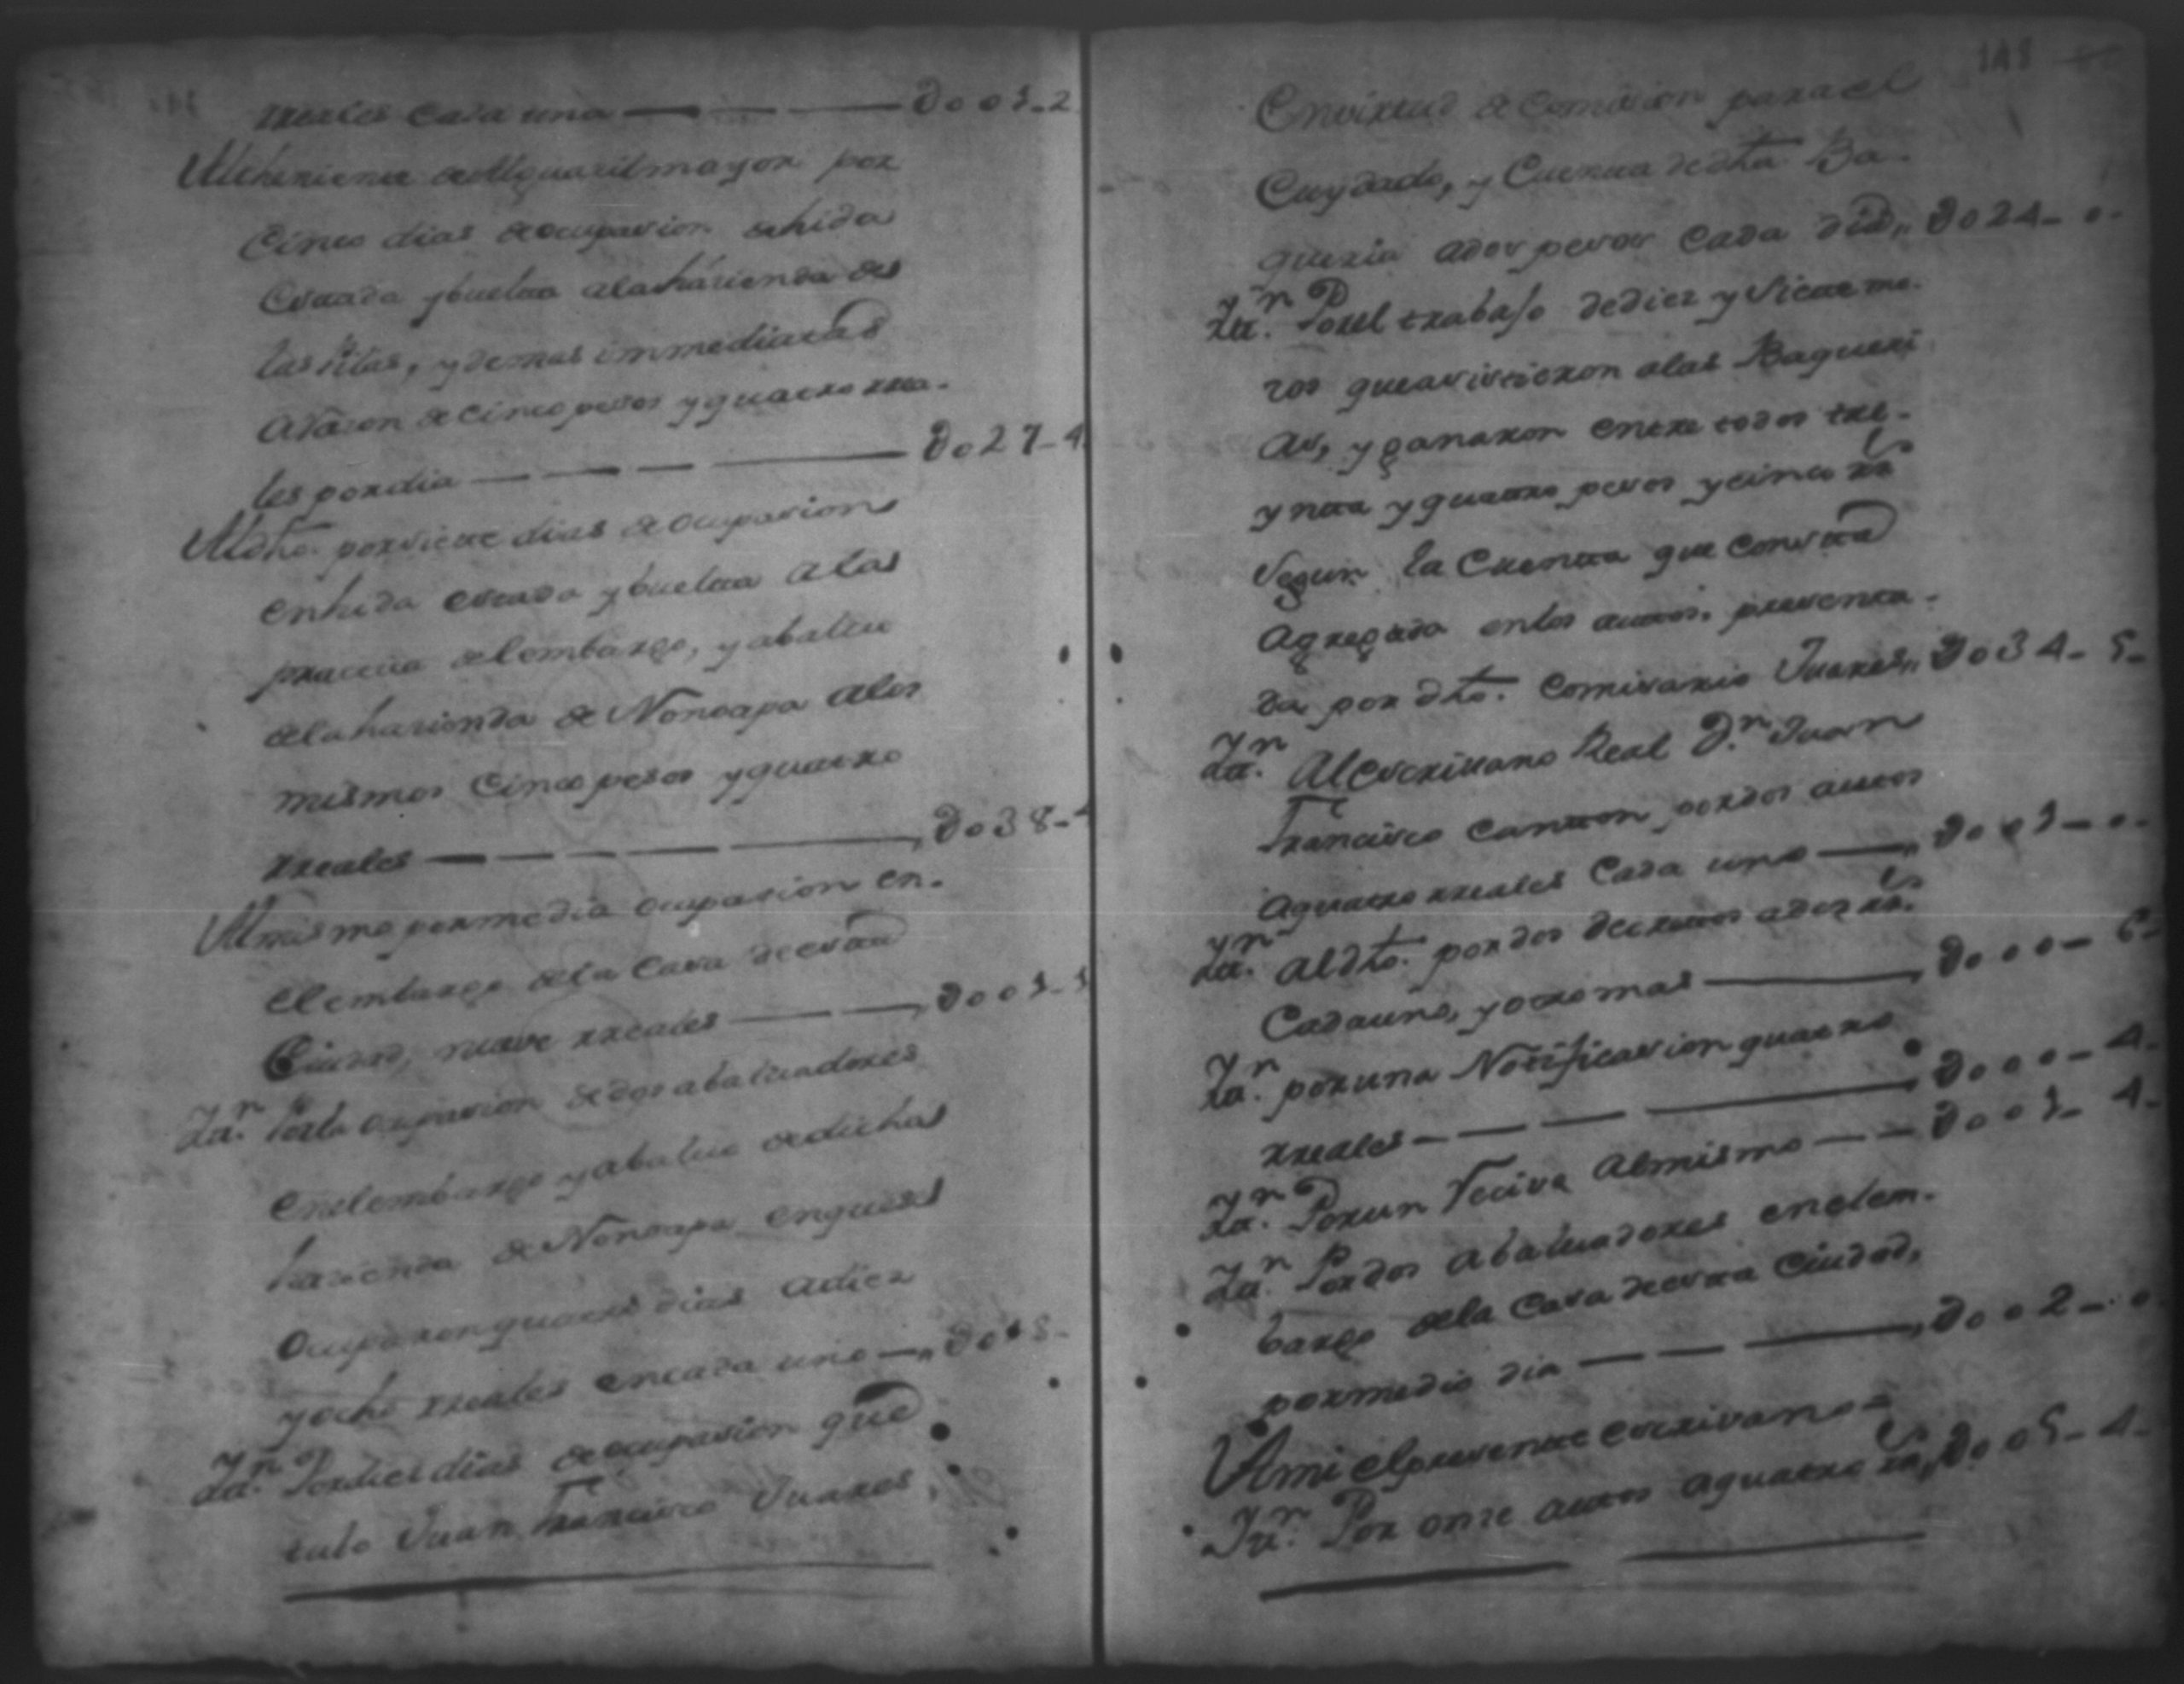 rreales Cada una — — — D001-2
Al theniente de Alguasil mayor por
Cinco dias de ocupasion de hida
estada y buelta a la hasienda de
las Pilas, y demas immediatas
a rason de cinco pesos y quatro rrea-
les por dia — — — — D027-4
Al dho. por siete dias de ocupasion
en hida estada y buelta a las
practica del embargo, y abaluo
de la hasienda de Nonoapa a los
mismos Cinco pesos y quatro
rreales — — — — D038-4
Al mismo por media ocupasion en
el embargo de la Casa de esta
Ciudad, nueve rreales — — D001-1
Ytt.n Por la ocupasion de dos abaluadores
en el embargo y abaluo de dichas
hasienda de Nonoapa en que se
ocuparon quatro dias a diez
y ocho rreales en cada uno — D018-
Ytt.n Por diez dias de ocupasion que
tubo Juan Francisco Juares
141
En virtud de Comision para el
Cuydado, y Cuenta de dha Ba-
queria a dos pesos Cada dia,, D024-0-
Ytt.n Por el trabajo de diez y siete mo-
zos que asistieron a las Baqueri
as, y ganaron entre todos tre-
ynta y quatro pesos y cinco rr.s
segun la Cuenta que consta
Agregada en los autos, presenta-
da por dho. Comisario Juares,, D034-5-
Ytt.n Al escrivano Real D.n Juan
Francisco Canton por dos autos
a quatro rreales Cada uno — D001-0-
Ytt.n al dho. por dos decretos a dos rr.s
Cada uno, y otro mas — D000-6-
Ytt.n por una Notificasion quatro
rreales — — — D000-4-
Ytt.n Por un Al mismo — — D001-4-
Ytt.n Por dos Abaluadores en el em-
bargo de la Casa de esta Ciudad,
por medio dia — — — D002-0
A mi el presente escrivano
Ytt.n Por onze autos a quatro rr.s D005-4-